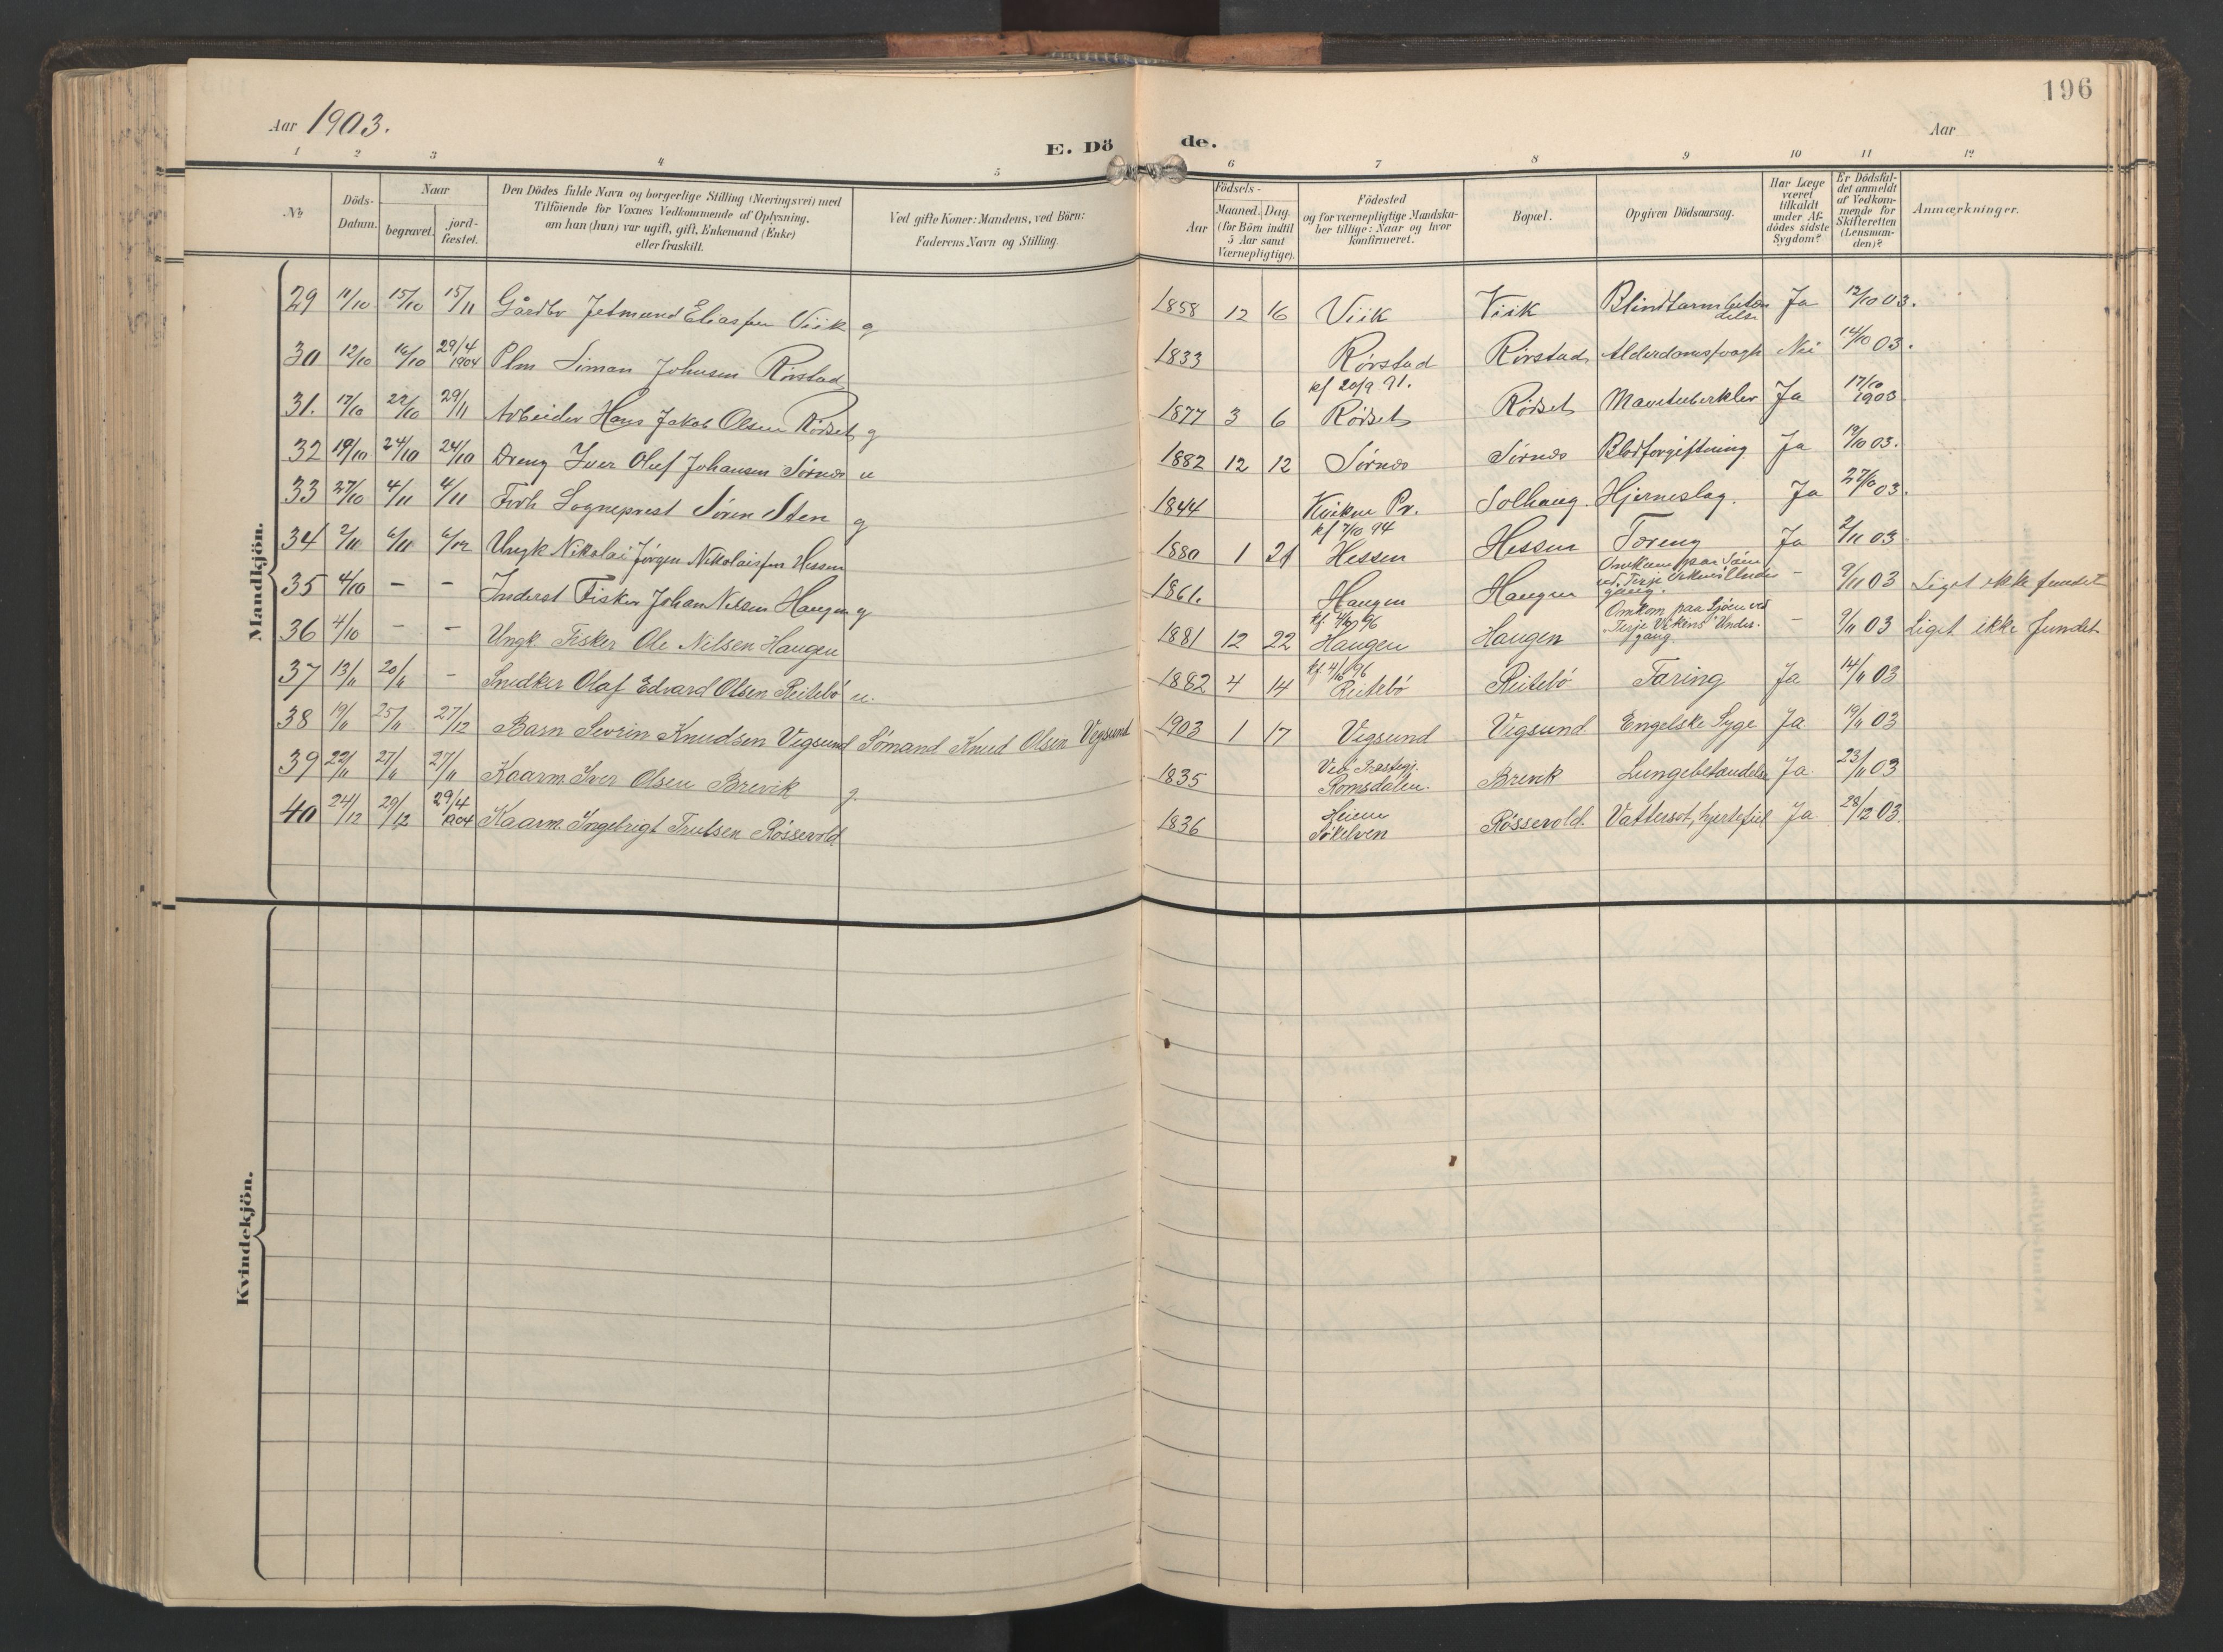 196
Aar 1903.
Aar
E. Dö de.
1 2 3 4 5 6 7 8 9 10 11 12
№
Döds-
Datum.
Naar
begravet.
jord-
fæstet.
Den Dödes fulde Navn og borgerlige Stilling (Næringsvei) med
Tilföiende for Voxnes Vedkommende af Oplysning,
om han (hun) var ugift, gift, Enkemand (Enke)
eller fraskilt.
Ved gifte Koner: Mandens, ved Börn:
Faderens Navn og Stilling.
Födsels-
Aar
Maaned. Dag.
(for Börn indtil
5 Aar samt
Værnepligtige).
Födested
og for værnepligtige Mandska-
ber tillige: Naar og hvor
konfirmeret.
Bopæl.
Opgiven Dödsaarsag.
Har Læge
været
tilkaldt
under Af-
dödes sidste
Sygdom?
Er Dödsfal-
det anmeldt
af Vedkom-
mende for
Skifteretten
(Lensman-
den)?
Anmærkninger.
Mandkjön.
29 11/10 15/10 15/11 Gårdbr Jetmund Eliassen Viik g 1858 12 16 Viik Viik Blindtarmbetæn
delse Ja 12/10 03.
30 12/10 16/10 29/4
1904 Plm Simon Johnsen Rörstad 1833 Rörstad Rörstad Nei 14/10 03.
31. 17/10 22/10 29/11 Arbeider Hans Jakob Olsen Rödset g 1877 3 6 kf 20/9 91.
Rödset Rödset Mavetuberkler Ja 17/10
1903
32 19/10 24/10 24/10 Dreng Iver Oluf Johansen Sörnes u 1882 12 12 Sörnes Sörnes Blodforgiftning Ja 19/10 03.
33 27/10 4/11 4/11 Forh Sogneprest Sören Sten g 1844 Kvikne Pr. Solhaug. Hjerneslag. Ja 27/10 03.
34 2/11 6/11 6/12 Ungk Nikolai Jörgen Nikolaissen Hessen 1880 1 21 kf 7/10 94
Hessen Hessen Ja 2/11 03
35 4/10 - - Inderst Fisker Johan Nilsen Haugen g 1861. Haugen Haugen Omkom paa Söen
ved Terje Vikens Under
gang. - 9/11 03 Liget ikke fundet
36 4/10 - - Ungk. Fisker Ole Nilsen Haugen 1881 12 22 kf. 4/10 96
Haugen Haugen Omkom paa Sjöen ved
"Terje Vikens" Under-
gang - 9/11 03 Liget ikke fundet
37 13/11 20/11 - Snedker Olaf Edvard Olsen Reitebö u. 1882 4 14 kf. 4/10 96
Reitebö Reitebö Tæring Ja 14/11 03
38 19/11 25/11 27/12 Barn Sevrin Knudsen Vegsund Sömand Knud Olsen Vegsund 1903 1 17 Vegsund Vegsund Engelske Syge Ja 19/11 03
39 22/11 27/11 27/11 Kaarm. Iver Olsen Brevik g. 1835
Romsdalen. Brevik Lungebetændelse Ja. 23/11 03
40 24/12 29/12 29/4
1904 Kaarm. Ingebrigt Trulsen Rössevold 1836
Sökelven Rössevold. Vattersot, hjertefeil Ja. 28/12 03.
Kvindekjön.